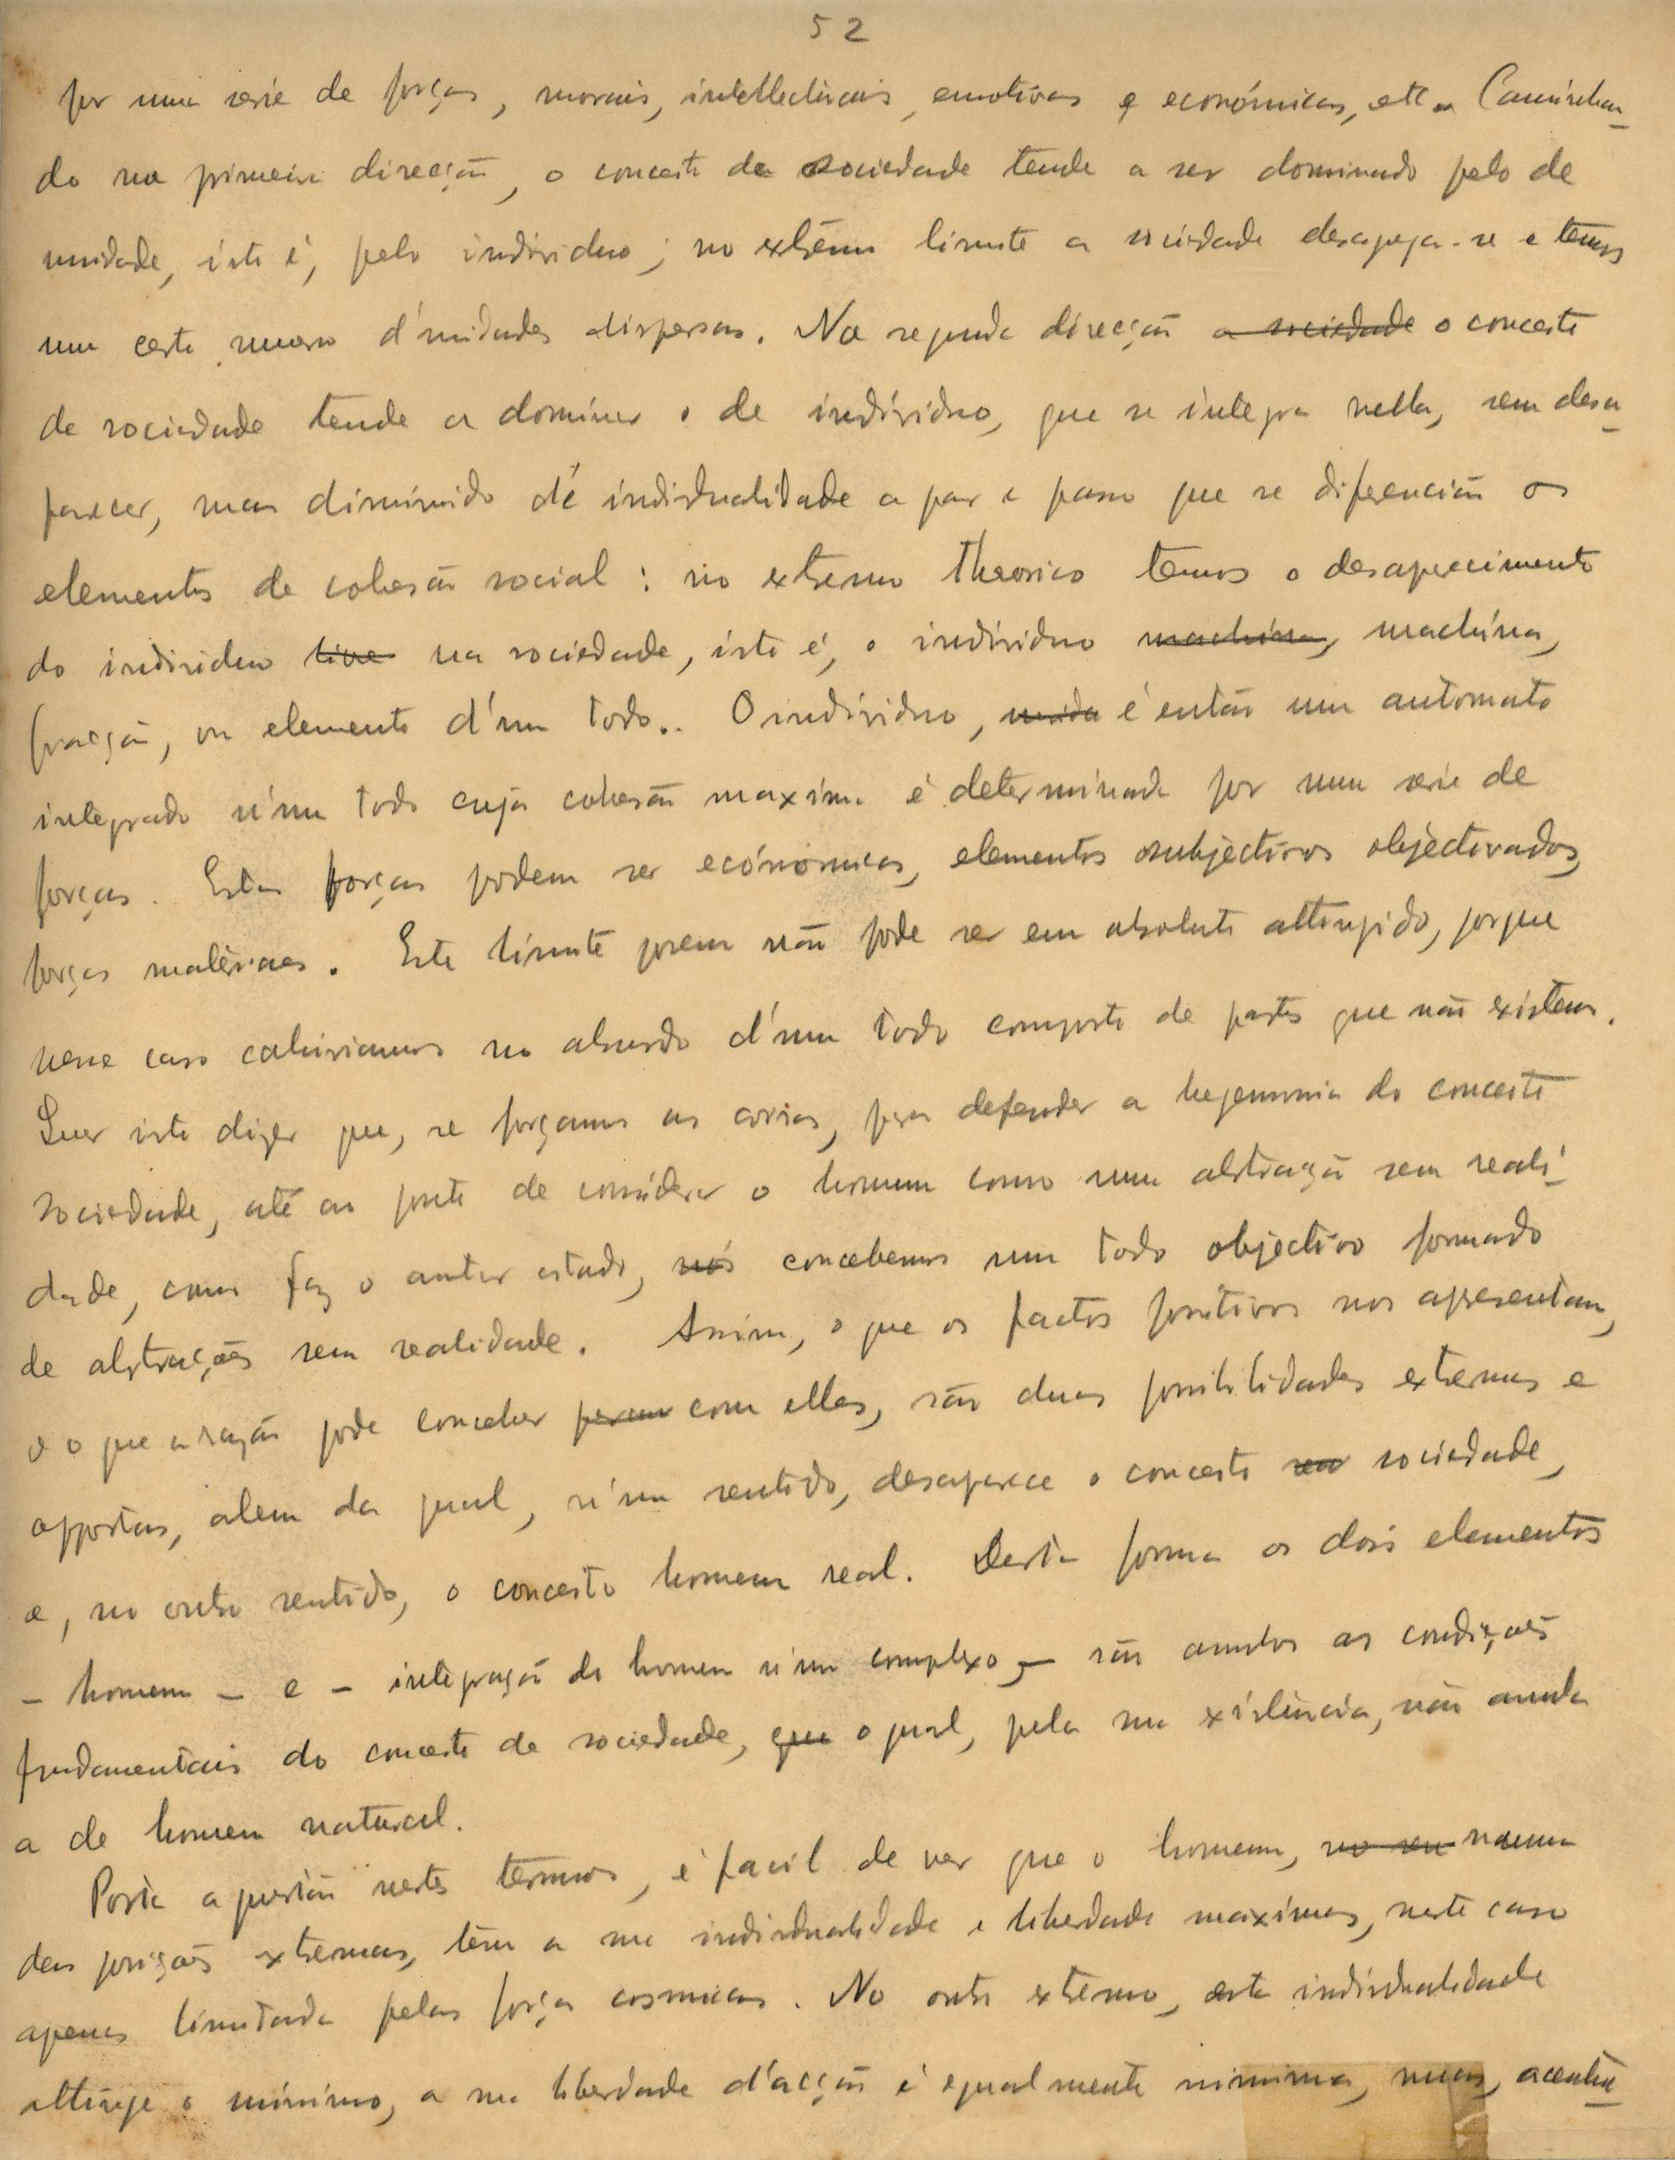 52
por uma serie de forças, morais, intellectuais, emotivas e económicas, etc. Caminhan-
do na primeira direcção, o conceito de sociedade tende a ser dominado pelo de
unidade, isto é, pelo individuo; no extremo limite a sociedade desagrega-se e temos
um certo numero d'unidades dispersas. Na segunda direcção a sociedade o conceito
de sociedade tende a dominar o de individuo, que se integra nella, sem desa-
parecer, mas diminuido de individualidade a par e passo que se diferenciam os
elementos de cohesão social: no extremo theorico temos o desaparecimento
do individuo livre na sociedade, isto é, o individuo machina, machina,
fracção, ou elemento d'um todo.. O individuo, é então um automato
integrado n'um todo cuja cohesão maxima é determinada por uma serie de
forças. Estas forças podem ser económicas, elementos subjectivos objectivados,
forças materiaes. Este limite porem não pode ser em absoluto attingido, porque
nesse caso cahiriamos no absurdo d'um todo composto de partes que não existem.
Quer isto dizer que, se forçamos as coisas, para defender a hegemonia do conceito
sociedade, até ao ponto de considerar o homem como uma abstração sem reali-
dade, como faz o autor citado, nós concebemos um todo objectivo formado
de abstrações sem realidade. Assim, o que os factos positivos nos apresentam,
e o que a razão pode conceber com elles, são duas possibilidades extremas e
oppostas, alem da qual, n'um sentido, desaparece o conceito sociedade,
e, no outro sentido, o conceito homem real. Desta forma os dois elementos
- homem - e - integração do homem n'um complexo - são ambos as condições
fundamentais do conceito de sociedade, que o qual, pela sua existencia, não anula
a de homem natural.
Posta a questão nestes termos, é facil de ver que o homem, no seu numa
das posições extremas, tem a sua individualidade e liberdade maximas, neste caso
apenas limitada pelas forças cosmicas. No outro extremo, esta individualidade
attinge o minimo, a sua liberdade d'acção é egualmente minima, mas,